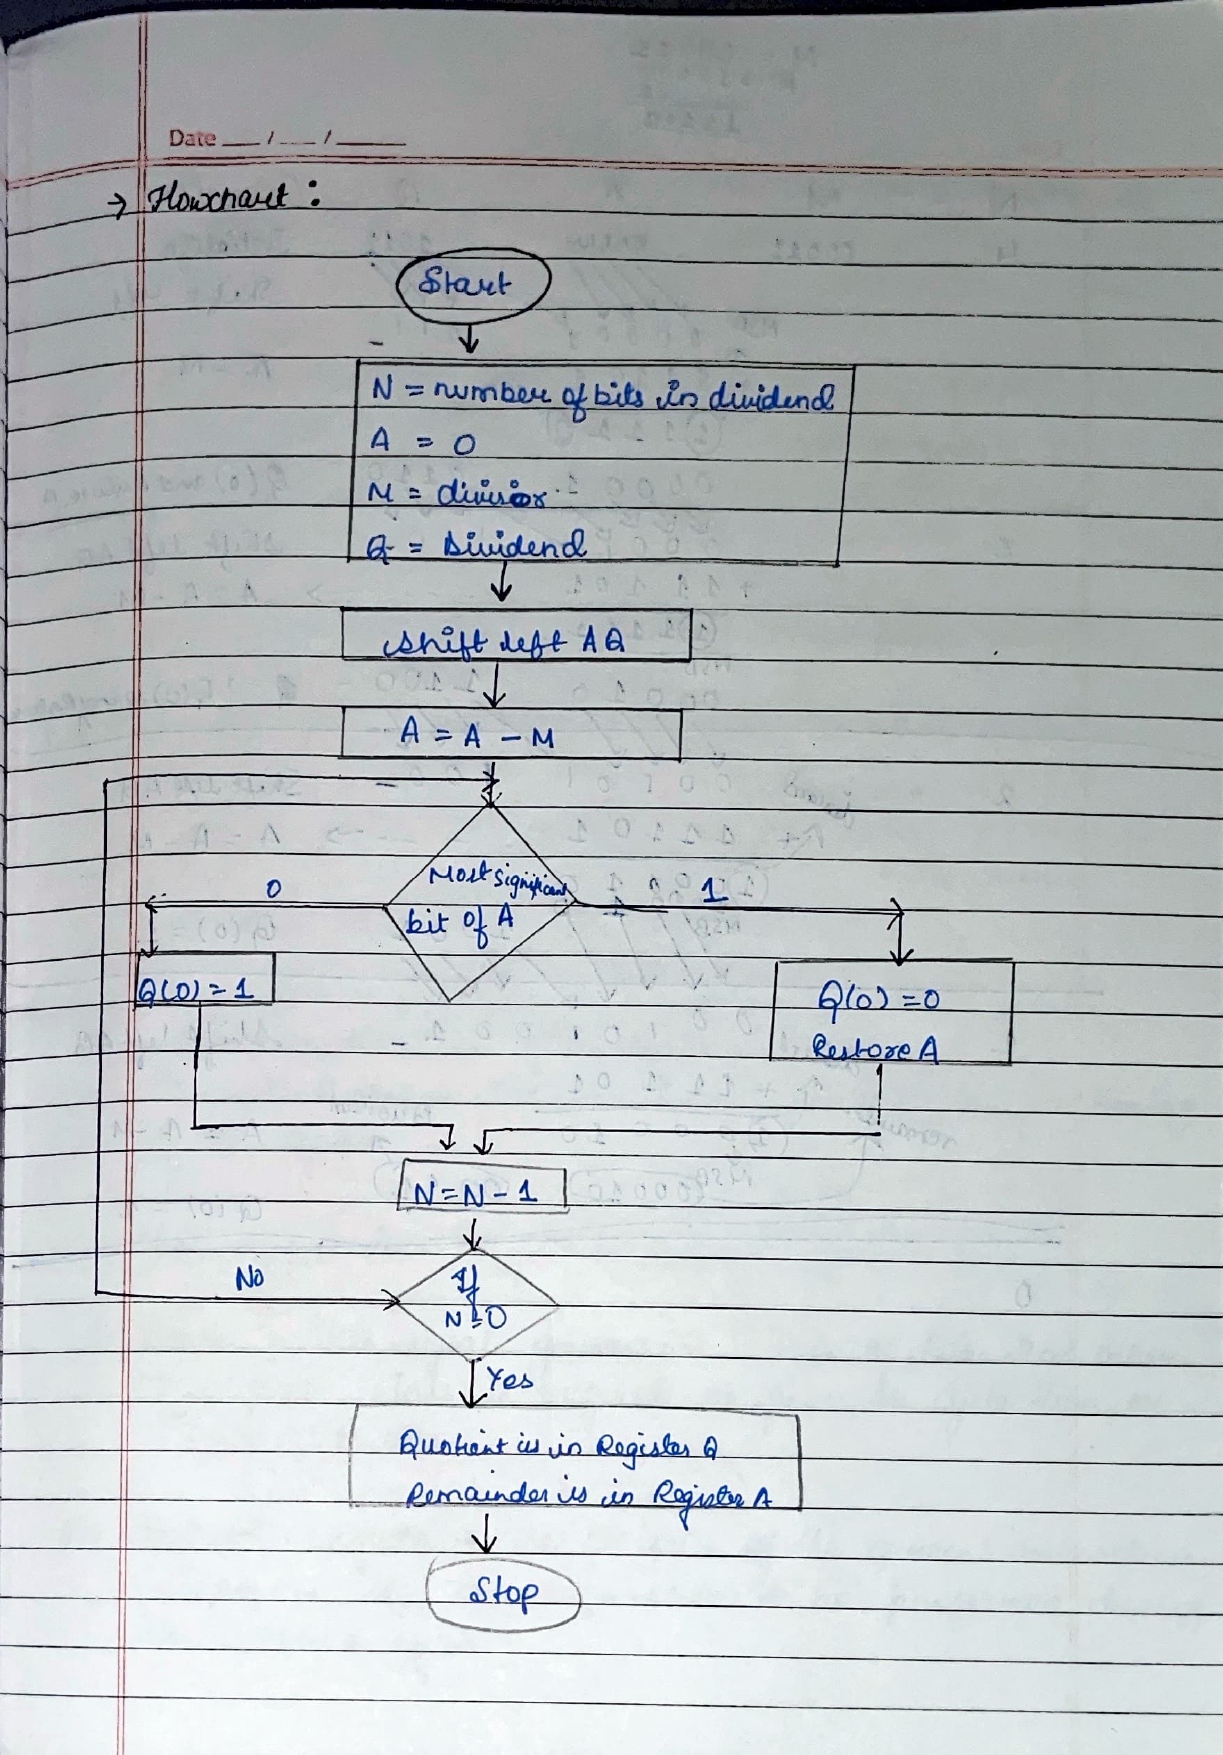 Date __/__/____
→ Flowchart :
Start
N = number of bits in dividend
A = 0
M = divisor
Q = Dividend
Shift left AQ
A = A - M
0
Most significant
1
bit of A
Q(0) = 1
Q(0) = 0
Restore A
N = N - 1
No
If
N = 0
Yes
Quotient is in Register Q
Remainder is in Register A
Stop